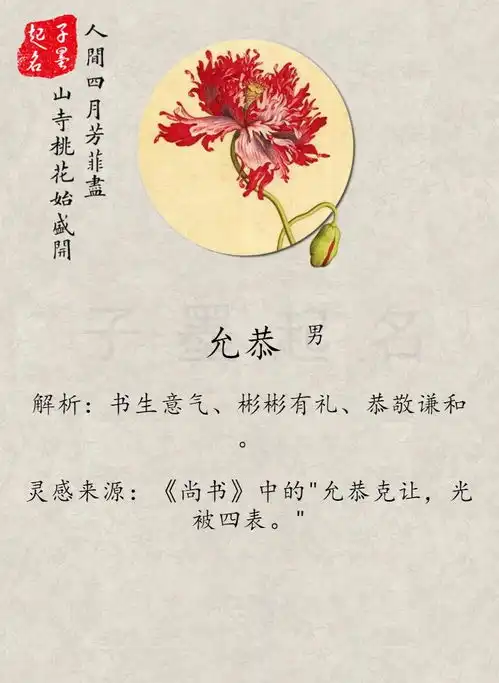 子墨
起名
人間四月芳菲盡
山寺桃花始盛開
子墨起名
允恭 男
解析：书生意气、彬彬有礼、恭敬谦和
。
灵感来源：《尚书》中的"允恭克让，光
被四表。"